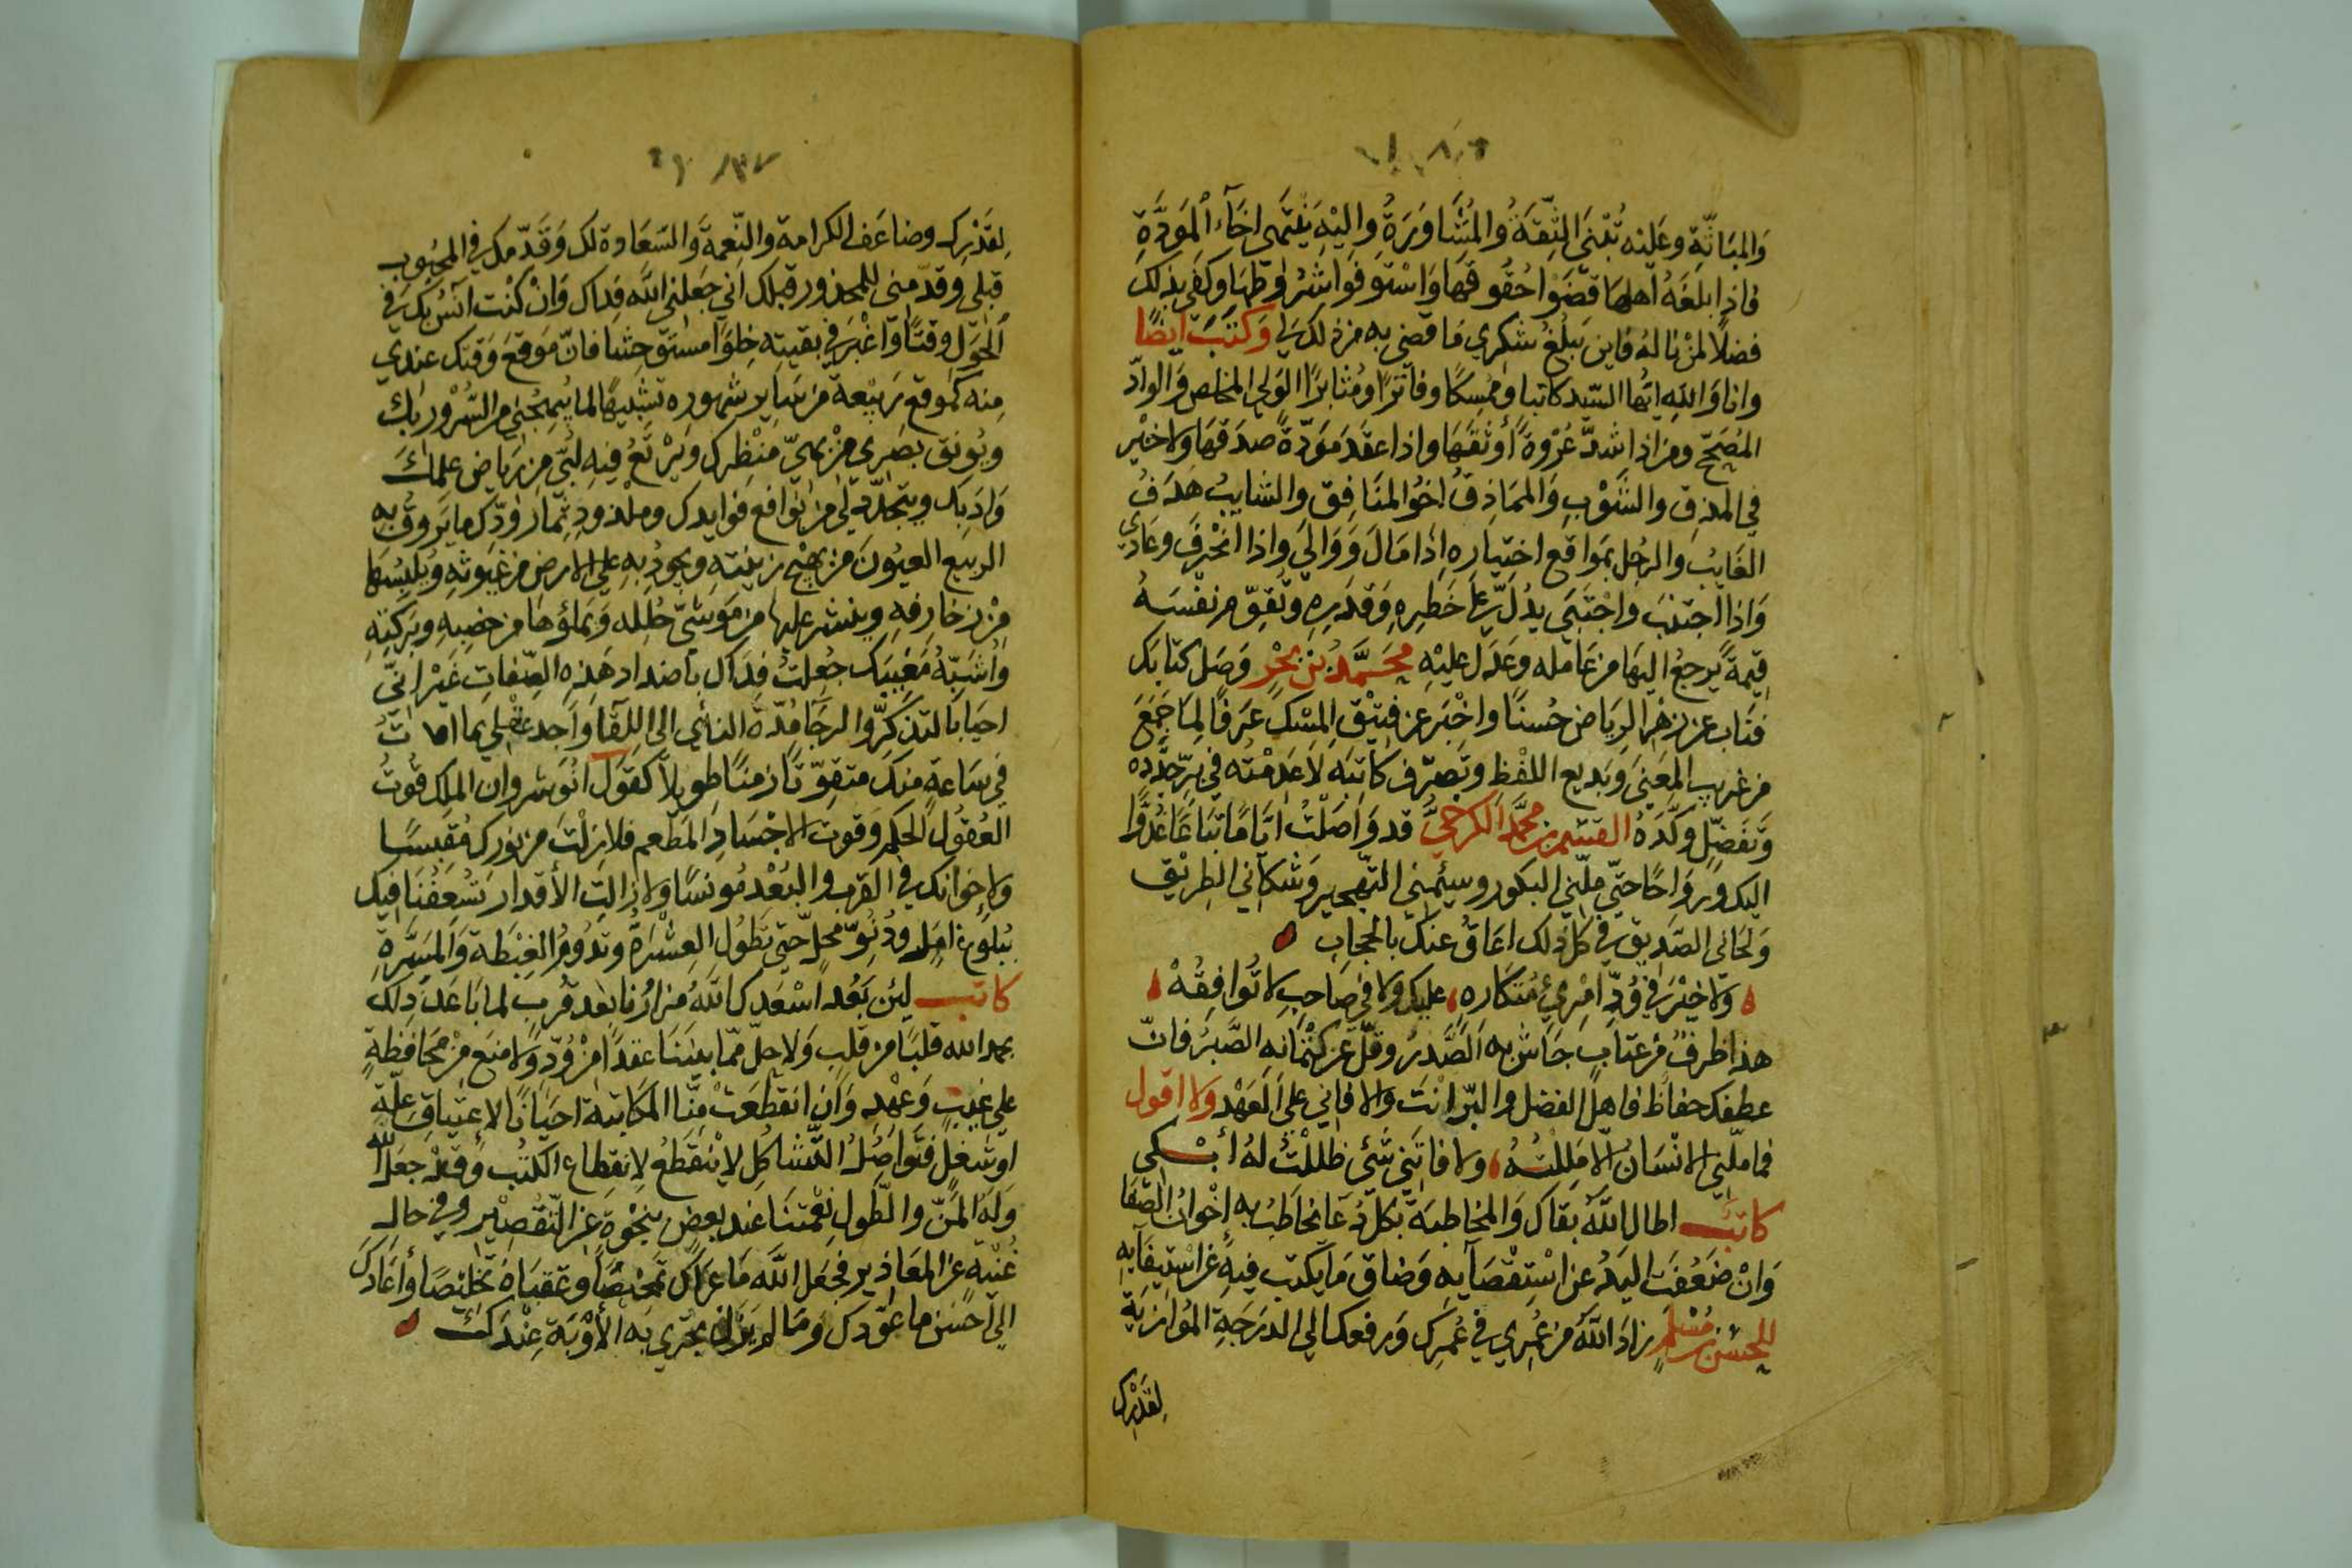 والمباثة وعليه تبتنى الثقة والمشاورة واليه ينتهى اخاء المودة
فاذا بلغه اهلها قضوا حقوقها واستوفوا شروطها وكفى بذلك
فضلا لمن ناله فاين يبلغ شكري ما قضى به من ذلك لي وكتب ايضا
وانا والله ايها السيد كاتبا وممسكا وفاترا ومثابرا الولي المخلص والواد
المصحح ومن اذا شد عروة أوثقها واذا عقد مودة صدقها ولا خير
في المذق والشوب والمماذق اخو المنافق والشايب هدف
العايب والرجل بمواقع اختياره اذا مال ووالى واذا انحرف وعادى
واذا اجتنب واجتبى يدل على خطره وقدره وتقوم نفسه
قيمة يرجع اليها من عامله وعدل عليه محمد بن بحر وصل كتابك
فناب عن زهر الرياض حسنا واخبر عن فتيق المسك عرفا لما جمع
من غريب المعنى وبديع اللفظ وتصرف كاتبه لا عدمته في بر جدده
وتفضل وكده القسم بن محمد الكرخي قد واصلت اياما تباعا غدوا
اليك ورواحا حتى ملني البكور وسئمني التهجير وشكاني الطريق
ولحاني الصديق في كل ذلك اعاق عنك بالحجاب
ولا خير في ود امرئ متكاره عليك ولا في صاحب لا توافقه
هذا ظرف من عتاب جاش به الصدر وقل عن كتمانه الصبر فان
عطفك حفاظ فاهل الفضل والبر انت والا فاني على العهد ولا اقول
فما ملني الانسان الا مللته ولا فاتني شئ ظللت له أبكي
كاتب اطال الله بقاك والمخاطبة بكل دعا يخاطب به إخوان الصفا
وان ضعفت اليد عن استقصايه وضاق ما يكتب فيه عن استيفايه
الحسن بن مسلم زاد الله من عمري في عمرك ورفعك الى الدرجة الموازية
لقدرك
لقدرك وضاعف الكرامة والنعمة والسعادة لك وقدمك في المحبوب
قبلي وقدمني للمحذور قبلك اني جعلني الله فداك وان كنت آنس بك في
الحول وقتا واغبر في بقيته خلوا مستوحشا فان موقع وقتك عندي
منه كموقع ربيعة من ساير شهوره تشبيها لما يبهجني من السرور بك
ويونق بصري من بهي منظرك ويرتع فيه لبي من رياض علمك
وادبك ويتجدد لي من نوافع فوايدك وملذوذ ثمار ودك ما يروق به
الربيع العيون من بهج زينته ويجود به على الارض من غيوثه ويلبسها
من زخارفه وينشر عليها من موشى حلله ويملؤها من خصبه وبركته
واشبه مغيبك جعلت فداك باضداد هذه الصفات غير اني
احيا بالتذكر والرجا مدة النأي الى اللقا واجد عقلي بما
في ساعة منك متقوتا زمنا طويلا كقول انوشروان الملك قوت
العقول الحكم وقوت الاجساد المطعم فلا زلت من نورك مقبسا
ولاخوانك في القرب والبعد مونسا ولا زالت الأقدار تسعفنا فيك
ببلوغ امل ودنو محل حتى تطول العشرة وتدوم الغبطة والمسرة
كاتب لين بعد اسعدك الله مزارنا بعد قرب لما باعد ذلك
بحمد الله قلبا من قلب ولا حل مما بيننا عقدا من ود ولا منع من محافظة
على غيب وعهد وان انقطعت منا المكاتبة احيانا لاعتياق علة
او شغل فتواصل التشاكل لا ينقطع لانقطاع الكتب وقد جعل الله
وله المن والطول نعمتنا عند بعض بنجوة عن التقصير وفي حال
غنية عن المعاذير فجعل الله ما عراك تمحيصا وعقباه تخليصا وأعادك
الى احسن ما عودك وما لم يزل يجري به الأوبة عندك